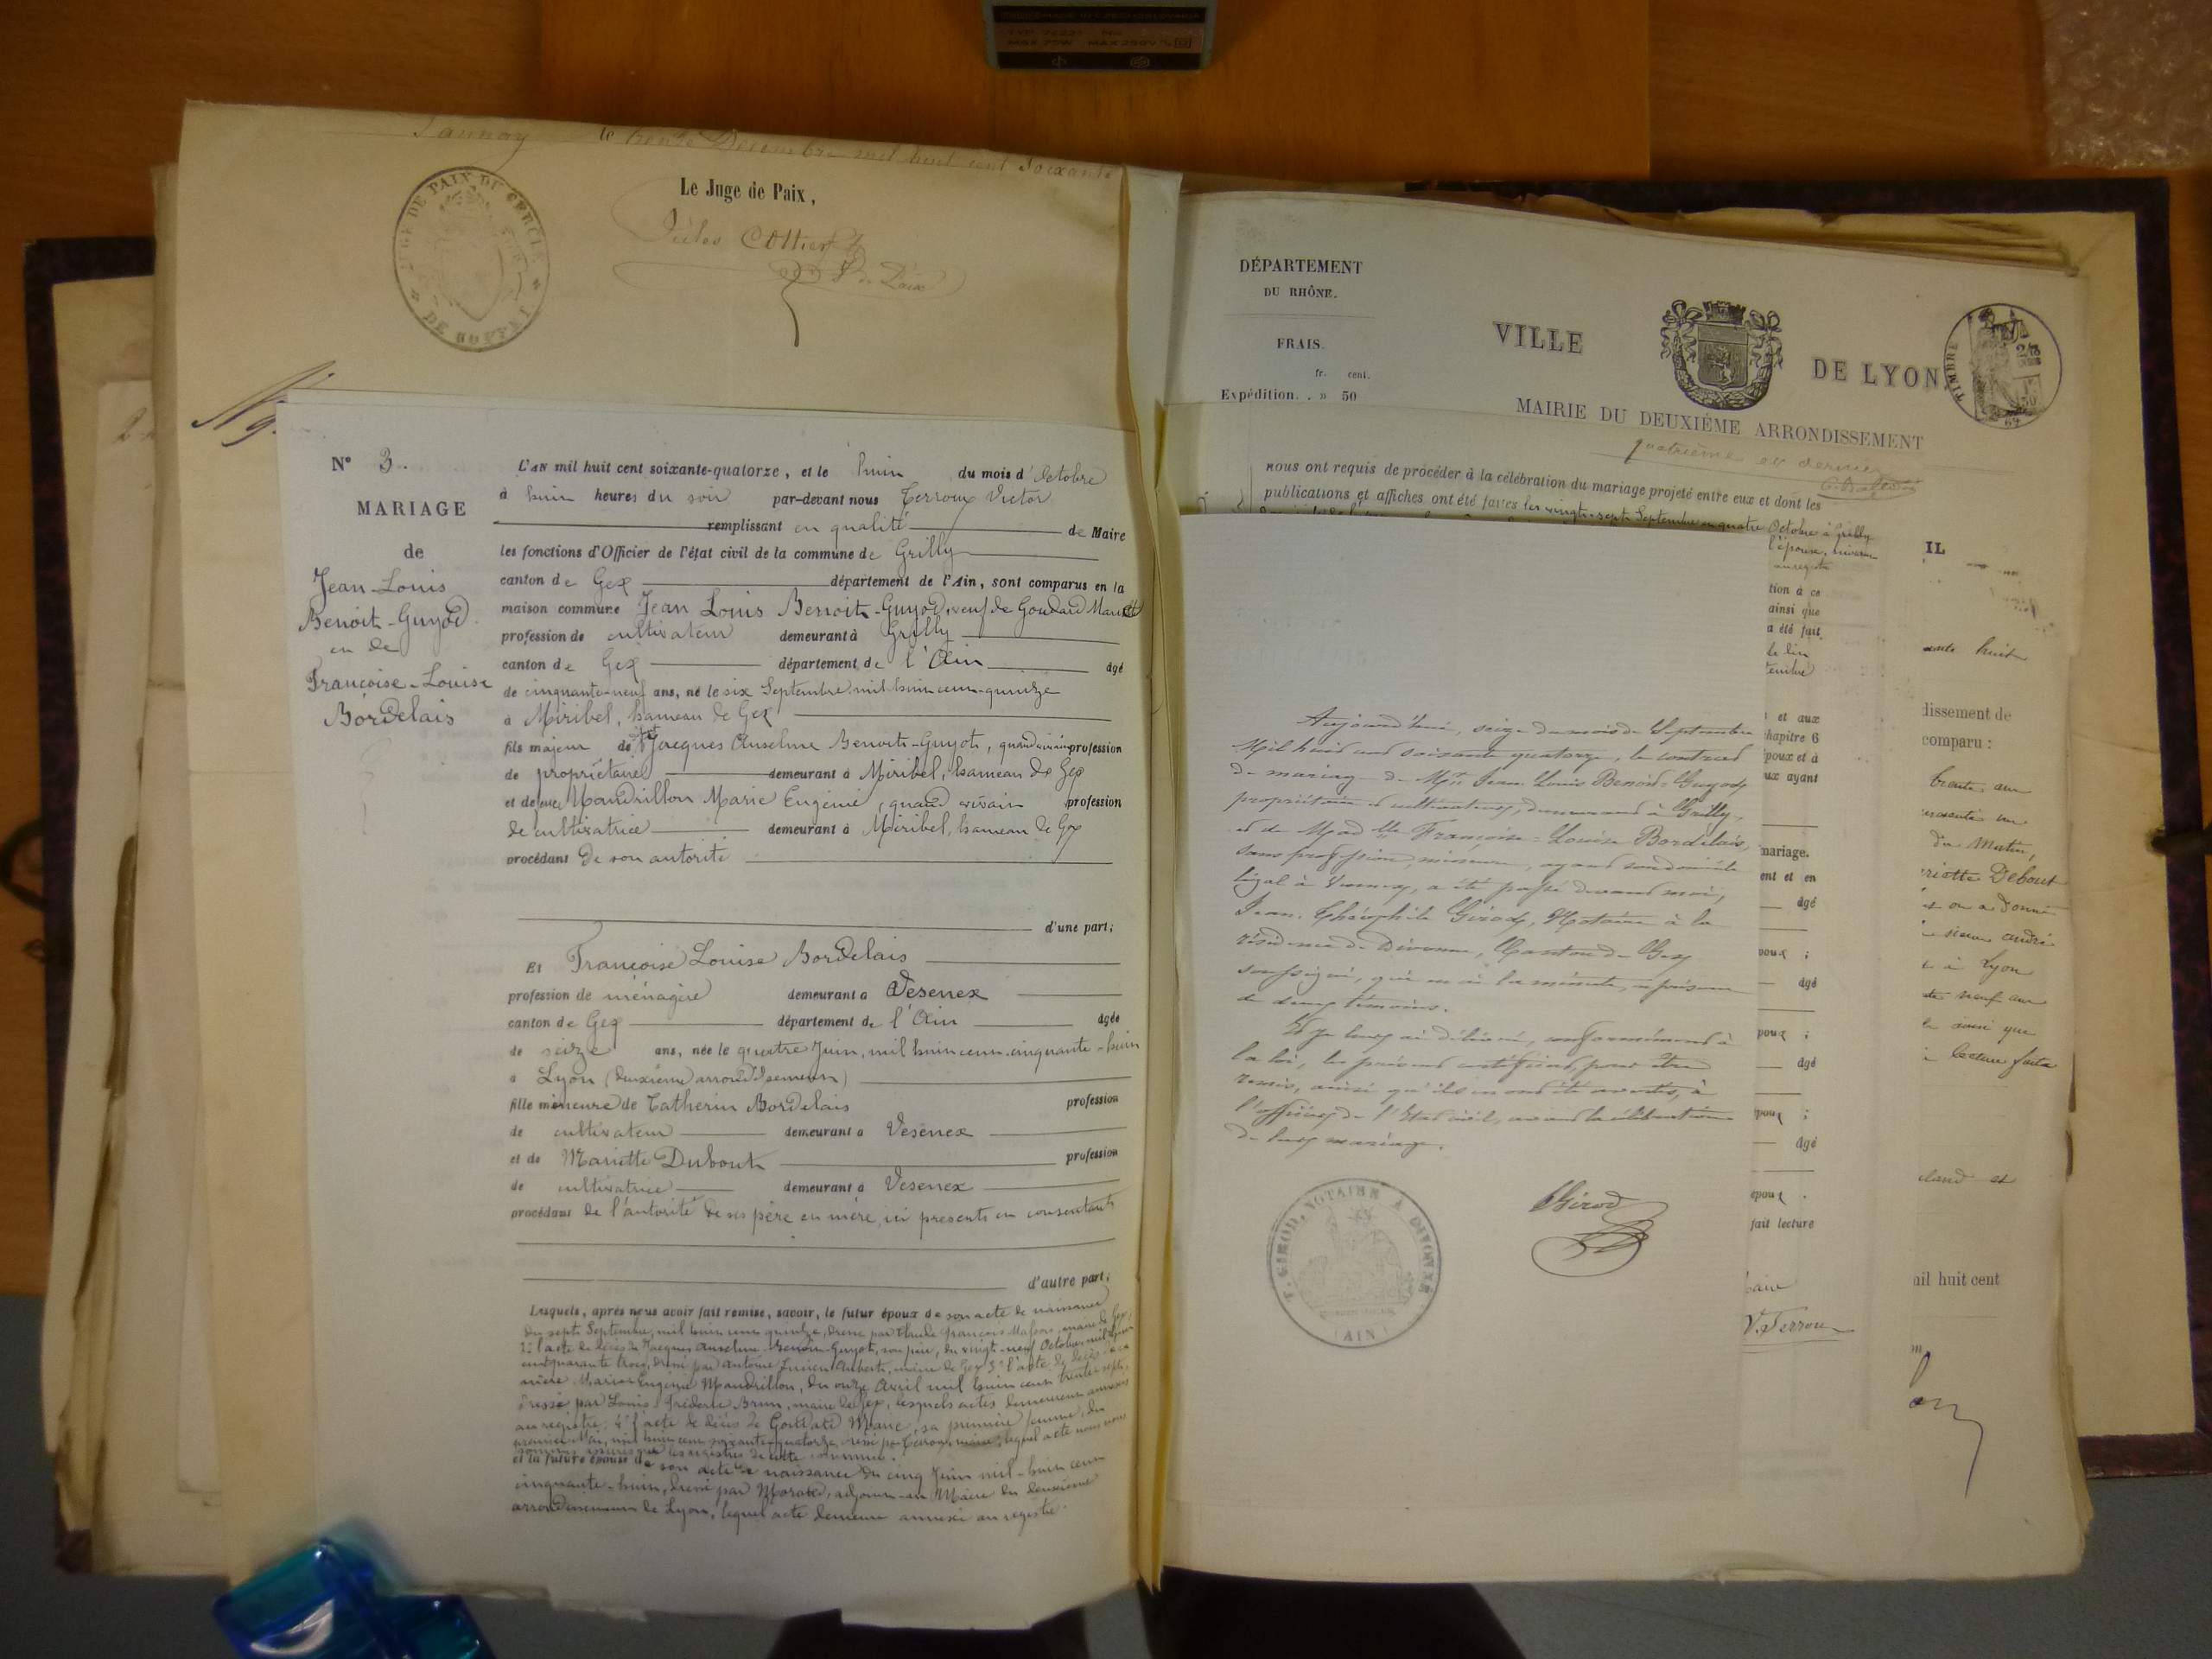 le trente Décembre mil huit cent Soixante
Le Juge de Paix,
JUGE DE PAIX DU CERCLE
N° 3.
MARIAGE
de
Jean-Louis
Benoit-Guyod
et de
Françoise-Louise
Bordelais
L'AN mil huit cent soixante-quatorze, et le huit du mois d'Octobre
à huit heures du soir par-devant nous Terroux Victor
remplissant en qualité de Maire
les fonctions d'Officier de l'état civil de la commune de Grilly
canton de Gex département de l'Ain, sont comparus en la
maison commune Jean Louis Benoit-Guyod, veuf de Goudard Marie
profession de cultivateur demeurant à Grilly
canton de Gex département de l'Ain âgé
de cinquante-neuf ans, né le six Septembre mil huit cent quinze
à Miribel, hameau de Gex
fils majeur de Jacques Anselme Benoit-Guyot, quand vivait profession
de propriétaire demeurant à Miribel, hameau de Gex
et de Mandrillon Marie Eugénie, quand vivait profession
de cultivatrice demeurant à Miribel, hameau de Gex
procédant de son autorité
d'une part;
Et Françoise Louise Bordelais
profession de ménagère demeurant à Vesenex
canton de Gex département de l'Ain âgée
de seize ans, née le quatre Juin, mil huit cent cinquante-huit
à Lyon (deuxième arrondissement)
fille mineure de Catherin Bordelais profession
de cultivateur demeurant à Vesenex
et de Mariette Dubout profession
de cultivatrice demeurant à Vesenex
procédant de l'autorité de ses père et mère, ici présents et consentants
d'autre part;
Lesquels, après nous avoir fait remise, savoir, le futur époux de son acte de naissance
du sept Septembre, mil huit cent quinze, dressé par Claude François maire de Gex,
2° l'acte de décès de Jacques Anselme Benoit-Guyot, son père, du vingt-neuf Octobre mil huit cent
cinquante trois, dressé par Antoine Lucien maire de Gex 3° l'acte de décès de sa
mère Marie Eugénie Mandrillon, du onze Avril mil huit cent trente sept,
dressé par Louis Frédéric Brun, maire de Gex, lesquels actes demeurent annexés
au registre; 4° l'acte de décès de Goudard Marie, sa première femme, du
premier Mai, mil huit cent soixante-quatorze, dressé par Terroux, maire, lequel acte nous nous
sommes assurés les registres de cette commune.
et la future épouse de son acte de naissance du cinq Juin mil-huit cent
cinquante-huit, dressé par adjoint au Maire du deuxième
arrondissement de Lyon, lequel acte demeure annexé au registre.
DÉPARTEMENT
DU RHÔNE.
FRAIS.
fr. cent.
Expédition. . » 50
VILLE DE LYON
TIMBRE
MAIRIE DU DEUXIÈME ARRONDISSEMENT
quatrième et dernier
nous ont requis de procéder à la célébration du mariage projeté entre eux et dont les
publications et affiches ont été faites les vingt-sept Septembre et quatre Octobre à Grilly
Aujourd'hui, seize du mois de Septembre
Mil huit cent soixante quatorze, le contrat
de mariage de Mr Jean Louis Benoit-Guyod,
propriétaire et cultivateur, demeurant à Grilly,
et de Madlle Françoise-Louise Bordelais,
sans profession, mineure, ayant son domicile
légal à a été passé devant moi,
Jean Théophile Girod, Notaire à la
résidence de Divonne, Canton de Gex
soussigné, qui en ai la minute, en présence
de deux témoins.
Et je leur ai délivré, conformément à
la loi, le présent certificat pour être
remis, ainsi qu'ils en ont été avertis, à
l'officier de l'Etat civil, avant la célébration
de leur mariage.
Girod
T. GIROD, NOTAIRE A DIVONNE
(AIN)
l'épouse,
tion à ce
ainsi que
a été fait
et aux
chapitre 6
époux et à
ux ayant
mariage.
ent et en
âgé
époux ;
âgé
époux ;
âgé
époux ;
âgé
époux .
fait lecture
V. Terroux
IL
huit
dissement de
comparu :
trente ans
du Matin,
Debout
a donné
André
à Lyon
neuf ans
ainsi que
lecture faite
et
mil huit cent